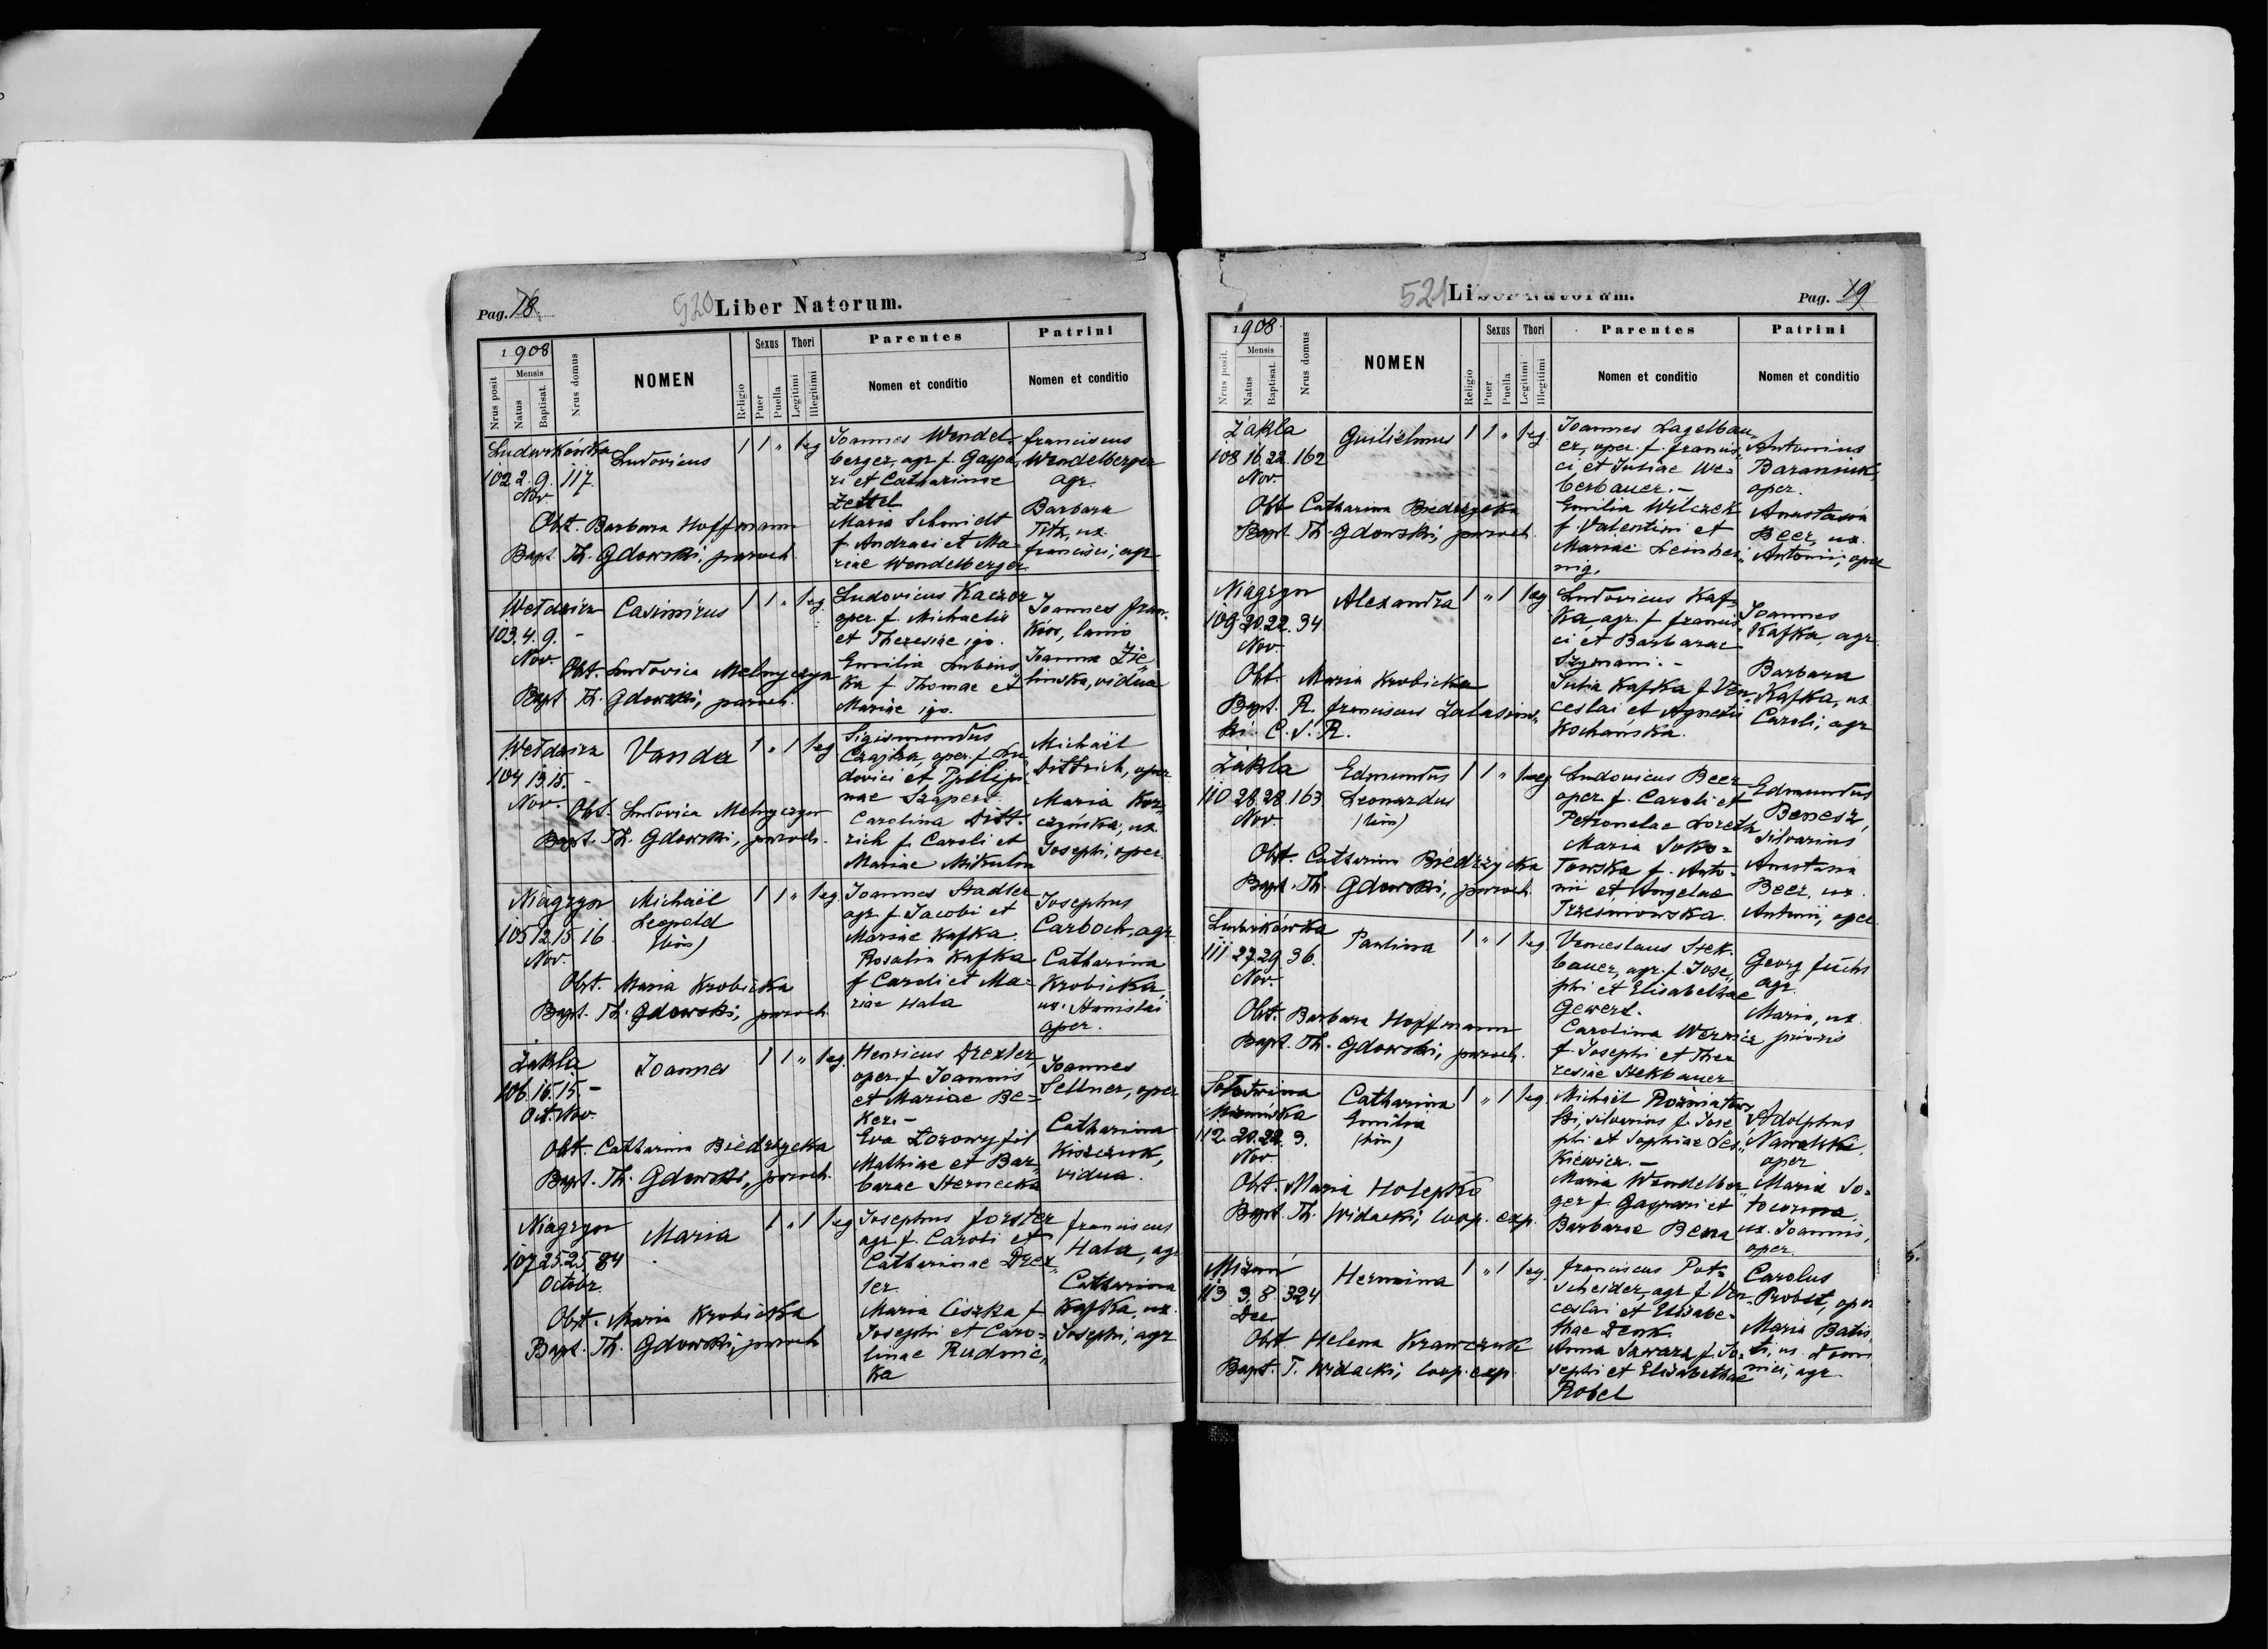 Pag. 18.
520
Liber Natorum.
1908
Nrus posit
Mensis
Natus
Baptisat.
Nrus domus
NOMEN
Religio
Sexus
Puer
Puella
Thori
Legitimi
Illegitimi
Parentes
Nomen et conditio
Patrini
Nomen et conditio
Ludwikówka
102 2. 9. 117.
Nov.
Ludovicus
1 1 " 1 eg.
Obst. Barbara Hoffmann
Bapt. Th. Gdowski, paroch.
Joannes Wendel-
berger, agr. f. Gaspa-
ri et Catharinae
Zettel
Maria Schmidt
f. Andraei et Ma-
riae Wendelberger
Franciscus
Wendelberger
agr.
Barbara
Titz, ux.
Francisci, agr.
Wełdzirz
103. 4. 9. -
Nov.
Casimirus
1 1 " 1 eg.
Obst. Ludovica Melnyczyn
Bapt. Th. Gdowski, paroch.
Ludovicus Kaczor
oper. f. Michaelis
et Theresiae igo.
Emilia Lubins
ka f. Thomae et
Mariae igo.
Joannes Fran-
ków, lanio
Joanna Zie
linska, vidua
Wełdzirz
104 13. 15. -
Nov.
Vanda
1 " 1 1 eg
Obst. Ludovica Melnyczyn
Bapt. Th. Gdowski, paroch.
Sigismundus
Czajka, oper. f. Lu
dovici et Philipi
nae Szaper
Carolina Ditt-
rich f. Caroli et
Mariae Mikulin
Michaël
Dittrich, oper
Maria Kor
czyńska, ux.
Josephi, oper.
Niagryn
105 12. 15 16.
Nov.
Michaël
Leopold
(bin)
1 1 " 1 eg.
Obst. Maria Krobicka
Bapt. Th. Gdowski, paroch.
Joannes Stadler
agr. f. Jacobi et
Mariae Kafka.
Rosalia Kafka
f. Caroli et Ma-
riae Hala
Josephus
Carboch, agr
Catharina
Krobicka,
ux. Stanislai
oper.
Zakla
106. 16. 15. -
Oct. Nov.
Joannes
1 1 " 1 eg.
Obst. Catharina Biedrzycka
Bapt. Th. Gdowski, paroch.
Henricus Drexler,
oper. f. Joannis
et Mariae Be-
ker. -
Eva Lozowy fil
Mathiae et Bar
barae Sternecka
Joannes
Sellner, oper
Catharina
Kiszczuk,
vidua.
Niagryn
107 25. 25. 84
Octobr.
Maria
1 " 1 1 eg
Obst. Maria Krobicka
Bapt. Th. Gdowski, paroch
Josephus Forster
agr. f. Caroli et
Catharinae Drex
ler
Maria Ciszka f.
Josephi et Caro-
linae Rudnic
ka
Franciscus
Hala, agr
Catharina
Kafka, ux.
Josephi, agr
521
Liber Natorum.
Pag. 19
1908.
Nrus posit.
Mensis
Natus
Baptisat.
Nrus domus
NOMEN
Religio
Sexus
Puer
Puella
Thori
Legitimi
Illegitimi
Parentes
Nomen et conditio
Patrini
Nomen et conditio
Zakla
108 16. 22. 162
Nov.
Guilielmus
1 1 " 1 eg.
Obst Catharina Biedrzycka
Bapt. Th. Gdowski, paroch.
Joannes Lagelbau
er, oper. f. Francis
ci et Juliae We-
berbauer. -
Emilia Wilczek
f. Valentini et
Mariae Leinber
nig.
Antonius
Baraniuk,
oper.
Anastasia
Beer, ux.
Antonii, oper
Niagryn
109 20. 22. 34.
Nov.
Alexandra
1 " 1 1 eg
Obst. Maria Krobicka
Bapt. R. Franciscus Zalasins
ki C. S. R.
Ludovicus Kaf-
ka, agr. f. Francis
ci et Barbarae
Szymani. -
Julia Kafka f. Ven
ceslai et Agnetis
Kochańska.
Joannes
Kafka, agr.
Barbara
Kafka, ux
Caroli, agr
Zakla
110 28. 28. 163.
Nov.
Edmundus
Leonardus
(bin)
1 1 " 1 eg
Obst. Catharina Biedrzycka
Bapt. Th. Gdowski, paroch.
Ludovicus Beer
oper. f. Caroli et
Petronelae Loreth
Maria Soko-
łowska f. Anto-
nii et Angelae
Trzesniowska.
Edmundus
Benesz,
silvarius
Anastasia
Beer, ux.
Antonii, oper.
Ludwikówka
111 27. 29. 36.
Nov.
Paulina
1 " 1 1 eg
Obst. Barbara Hoffmann
Bapt. Th. Gdowski, paroch.
Venceslaus Stek-
bauer, agr. f. Jose
phi et Elisabethae
Gewerl.
Carolina Wernicz
f. Josephi et The
resiae Stekbauer
Georg Fuchs
agr.
Maria, ux
prioris
Sołotwina
Mizuńska
112. 20. 22. 3.
Nov.
Catharina
Emilia
(bin)
1 " 1 1 eg
Obst. Maria Holepko
Bapt. Th. Widacki, coop. exp.
Michaël Rozniatow
ski, silvarius f. Jose
phi et Sophiae Les
kiewicz. -
Maria Wendelber
ger f. Gaspari et
Barbarae Bena
Adolphus
Nawalski,
oper
Maria So-
tocorna,
ux. Joannis,
oper.
Mizuń
113 3. 8. 324
Dec
Hermina
1 " 1 1 eg.
Obst. Helena Krawczuk
Bapt. T. Widacki, coop. exp.
Franciscus Put-
scheider, agr. f. Ven
ceslai et Elisabe-
thae Denk.
Anna Sawara f. Jo-
sephi et Elisabethae
Robel
Carolus
Probst, oper
Maria Batis
ti, ux. Domi
nici, agr.